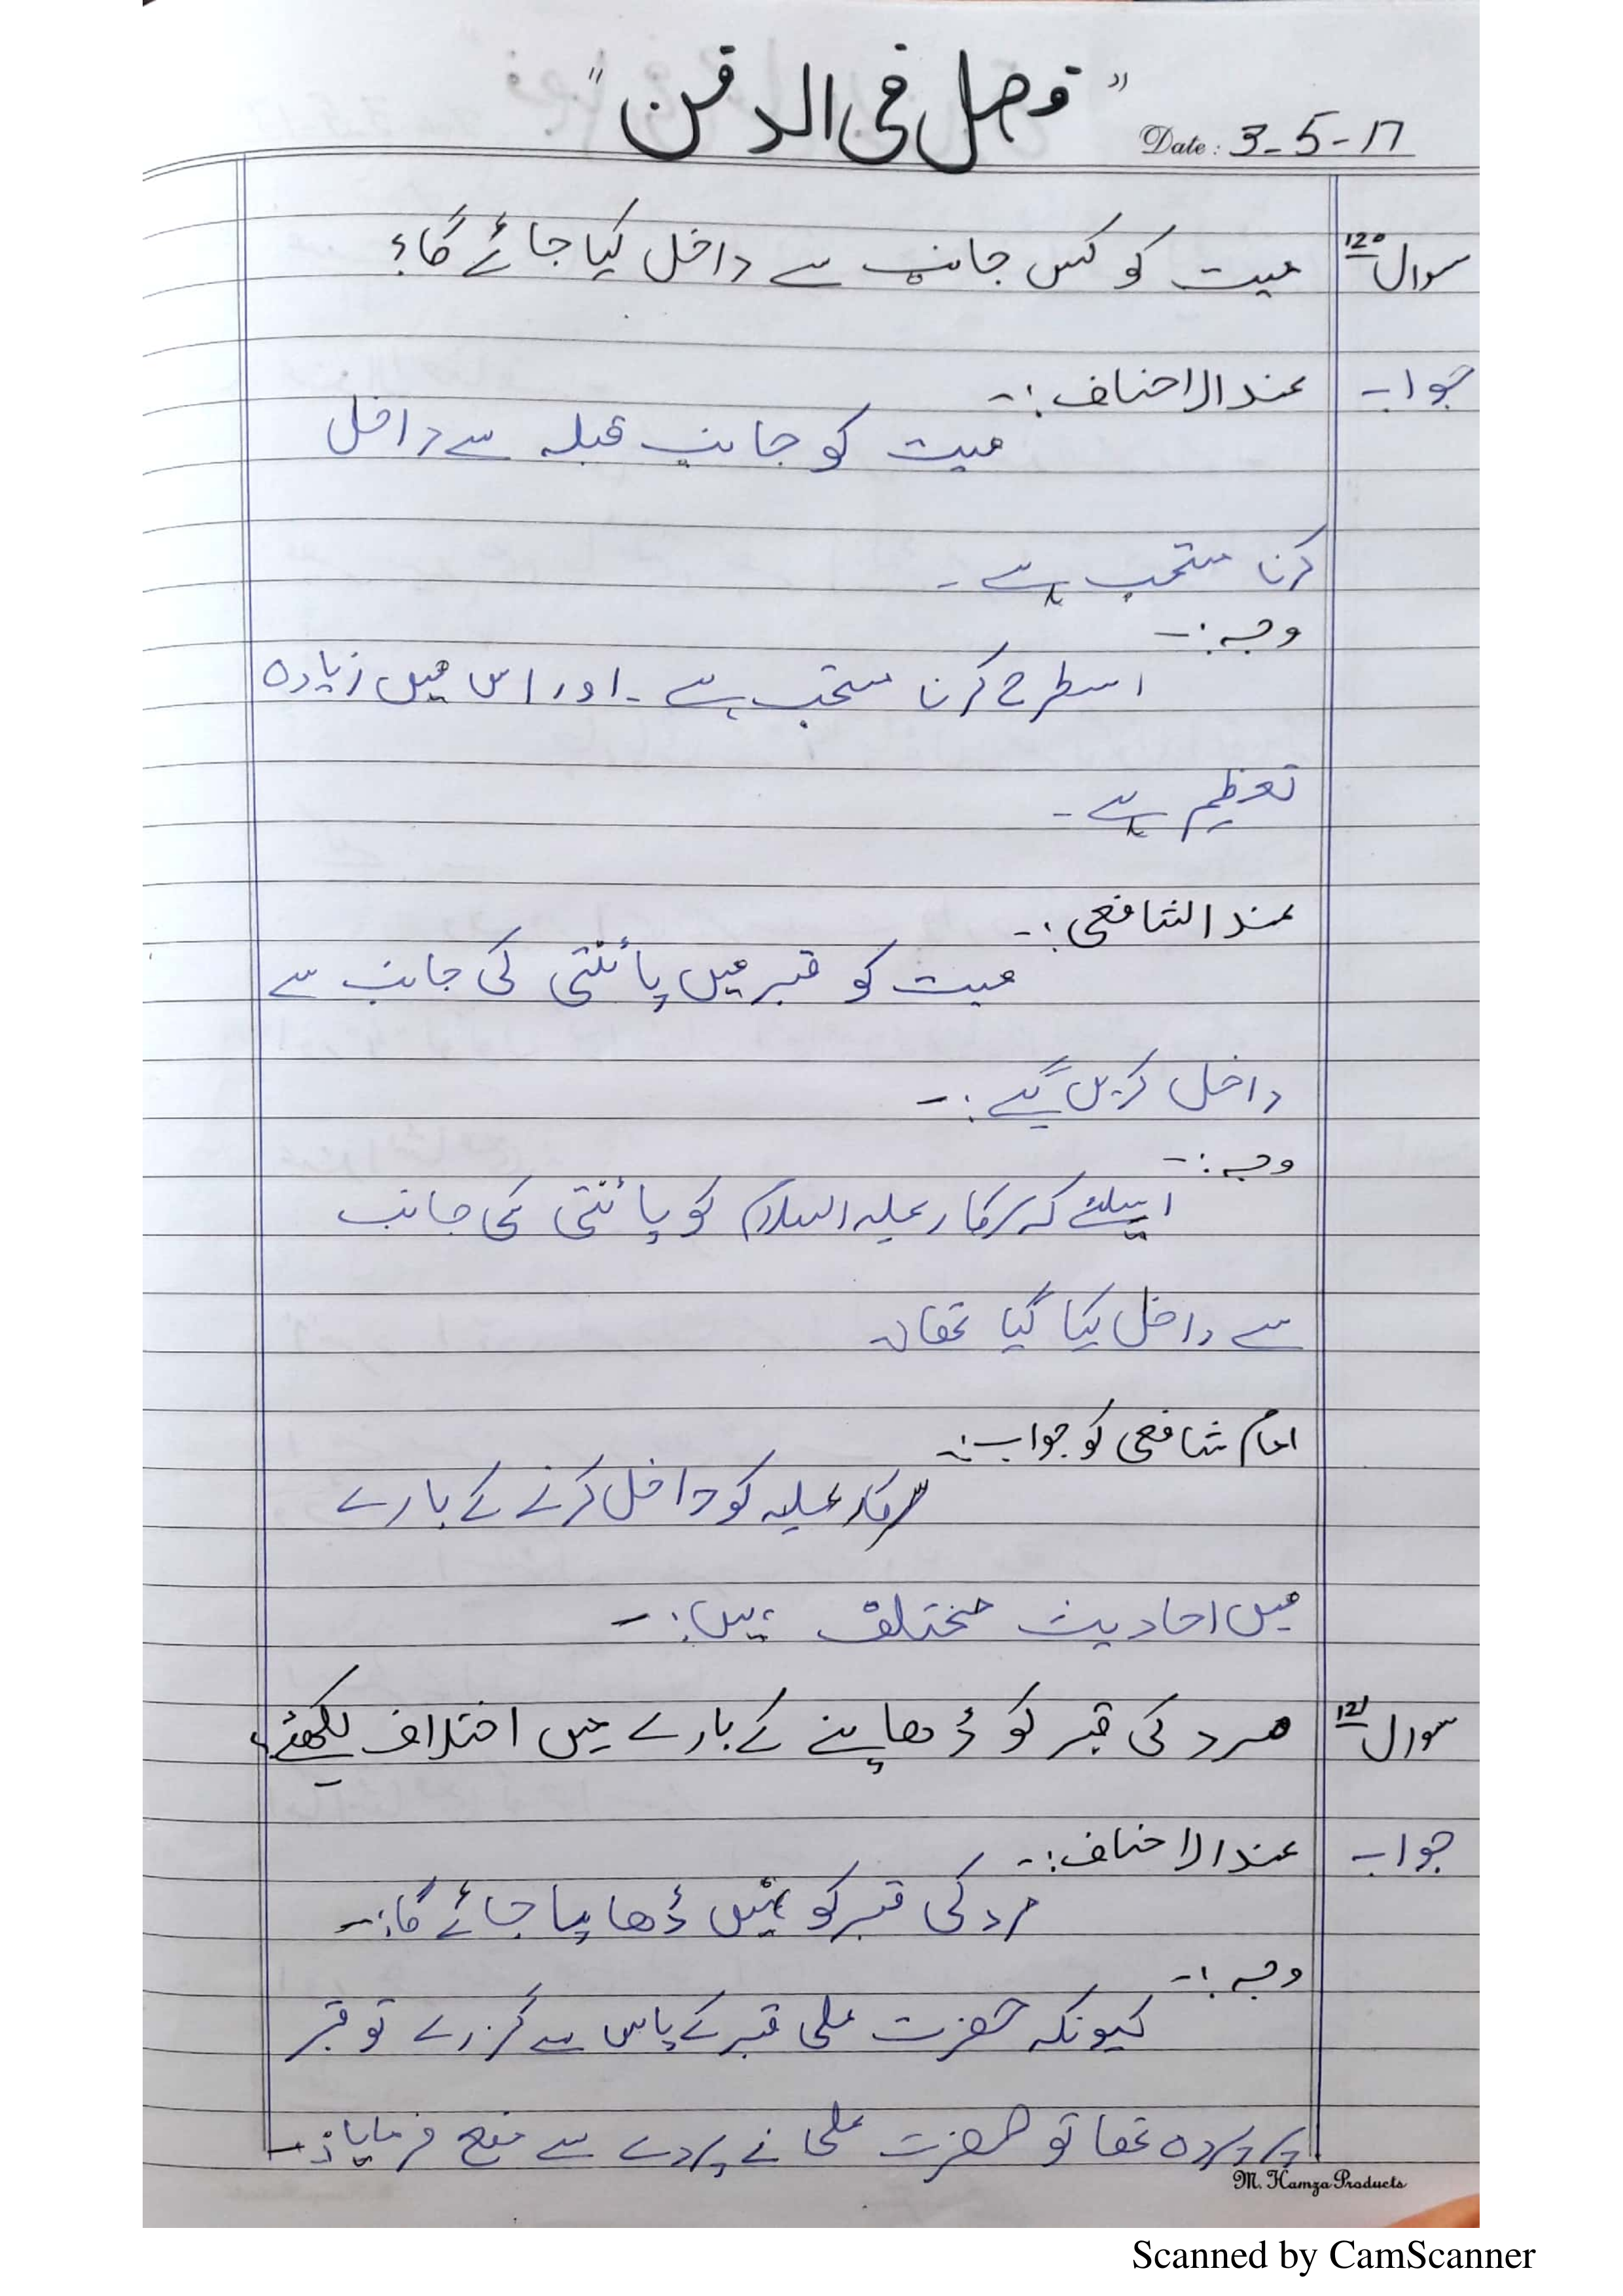 "فصل فی الدفن"
Date: 3-5-17
سوال 120 میت کو کس جانب سے داخل کیا جائے گا؟
جواب عند الاحناف:-
میت کو جانب قبلہ سے داخل
کرنا مستحب ہے۔
وجہ:-
اسطرح کرنا مستحب ہے۔ اور اس میں زیادہ
تعظیم ہے۔
عند الشافعی:-
میت کو قبر میں پائنتی کی جانب سے
داخل کریں گے:-
وجہ:-
اسلئے کہ سرکار علیہ السلام کو پائنتی کی جانب
سے داخل کیا گیا تھا۔
امام شافعی کو جواب:-
سرکار علیہ کو داخل کرنے کے بارے
میں احادیث مختلف ہیں:-
سوال 121 مرد کی قبر کو ڈھاپنے کے بارے میں اختلاف لکھئے؟
جواب عند الاحناف:-
مرد کی قبر کو نہیں ڈھاپا جائے گا:-
وجہ:-
کیونکہ حضرت علی قبر کے پاس سے گزرے تو قبر
پر پردہ تھا تو حضرت علی نے پردے سے منع فرمایا:-
M. Hamza Products
Scanned by CamScanner